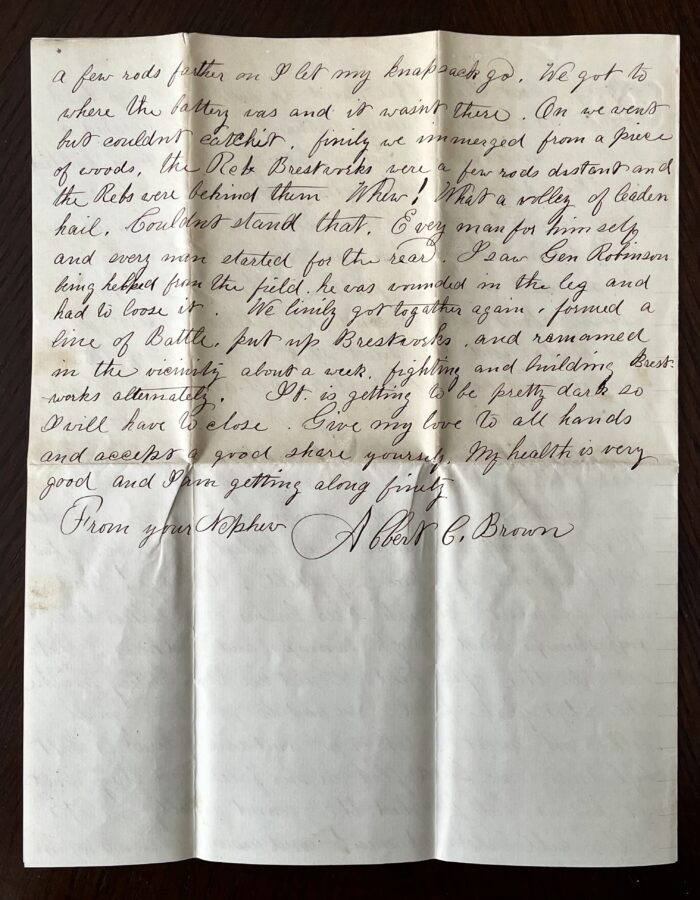 a few rods farther on I let my knapsack go. We got to
where the battery was and it wasn't there. On we went
but couldn't catchet. finily we immerged from a piece
of woods, the Reb Brestworks were a few rods distant and
the Rebs were behind them. Whew! What a volley of leaden
hail. Couldn't stand that. Every man for himself
and every man started for the rear. I saw Gen Robinson
being helped from the field. he was wounded in the leg and
had to loose it. We finily got together again, formed a
line of Battle, put up Brestworks, and remained
in the vicinity about a week, fighting and building Brest-
works alternately. It is getting to be pretty dark so
I will have to close. Give my love to all hands
and accept a good share yourself. My health is very
good and I am getting along finily
From your Nephew Albert C. Brown